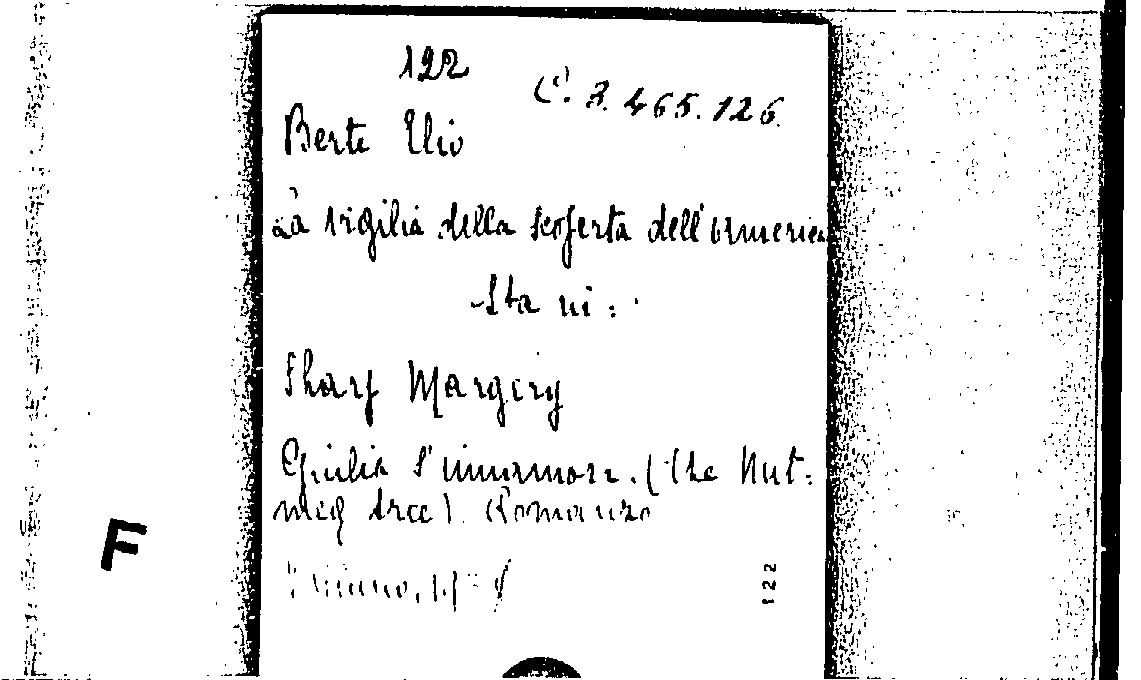 122
C. 3. 465.126.
Berte Elio
La vigilia della scoferta dell'America
Sta in:
Sharp Margery
Giulia s'innamora. (The Nut-
meg tree). Romanzo
122
F